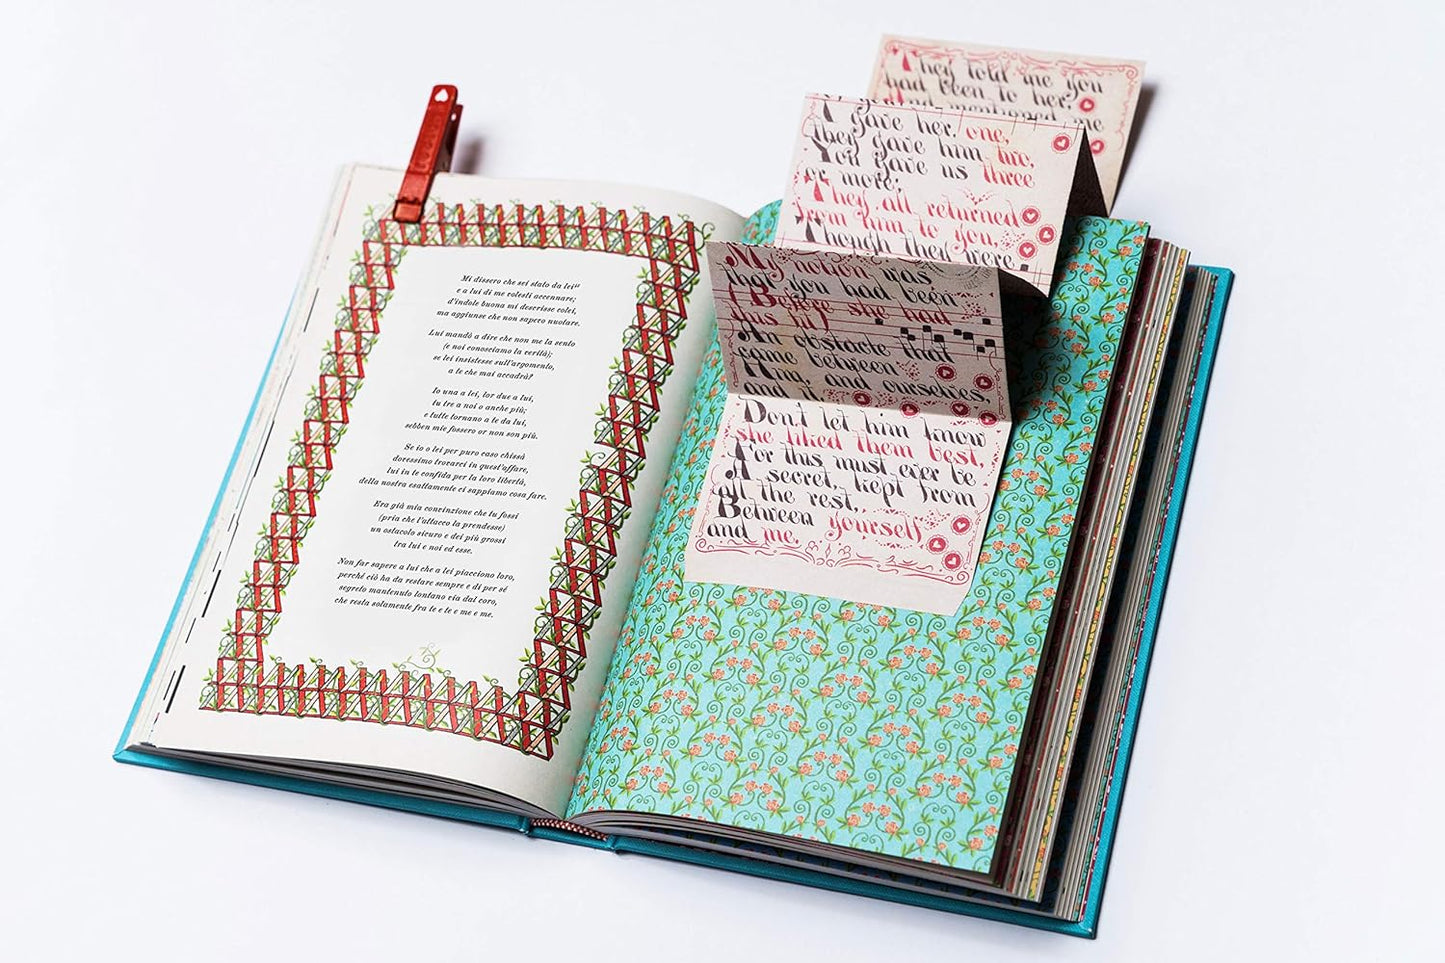 Mi dissero che sei stato da lei
e a lui di me volesti accennare;
d'indole buona mi descrisse colei,
ma aggiunse che non sapevo nuotare.
Lui mandò a dire che non me la sento
(e noi conosciamo la verità);
se lei insistesse sull'argomento,
a te che mai accadrà?
Io una a lei, lor due a lui,
tu tre a noi o anche più;
e tutte tornano a te da lui,
sebben mie fossero or non son più.
Se io o lei per puro caso chissà
dovessimo trovarci in quest'affare,
lui in te confida per la loro libertà,
della nostra esattamente ci sappiamo cosa fare.
Era già mia convinzione che tu fossi
(pria che l'attacco la prendesse)
un ostacolo sicuro e dei più grossi
tra lui e noi ed esse.
Non far sapere a lui che a lei piacciono loro,
perché ciò ha da restare sempre e di per sé
segreto mantenuto lontano via dal coro,
che resta solamente fra te e te e me e me.
They told me you
had been to her,
And mentioned me
I gave her one,
they gave him two,
You gave us three
or more;
They all returned
from him to you,
Though they were
My notion was
that you had been
(Before she had
this fit)
An obstacle that
came between
Him, and ourselves,
and it.
Don't let him know
she liked them best,
For this must ever be
A secret, kept from
all the rest,
Between yourself
and me.